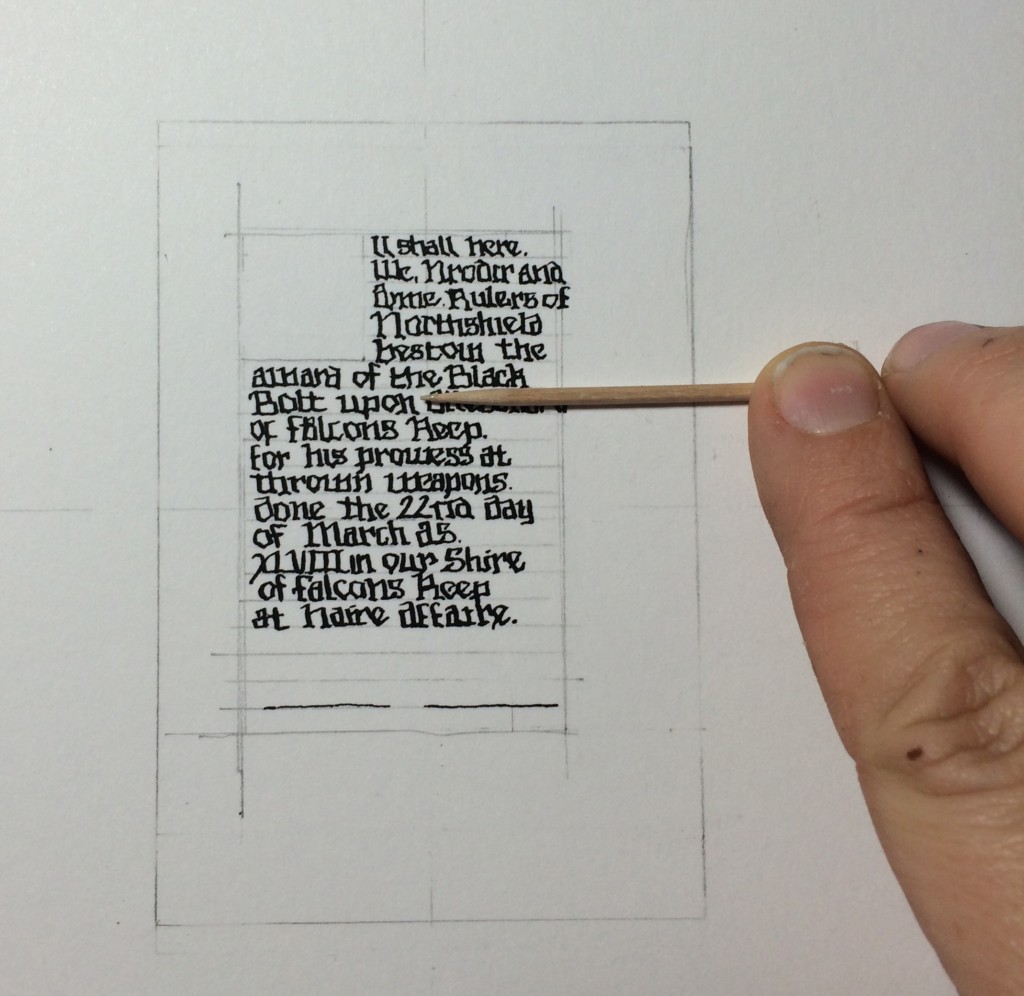 ll shall here.
We, Nrodir and
Anne. Rulers of
Northshield
bestow the
award of the Black
Bolt upon
of falcons Keep.
for his prowess at
thrown weapons.
done the 22nd day
of March as.
XLVIII in our Shire
of falcons Keep
at Haire Affaire.